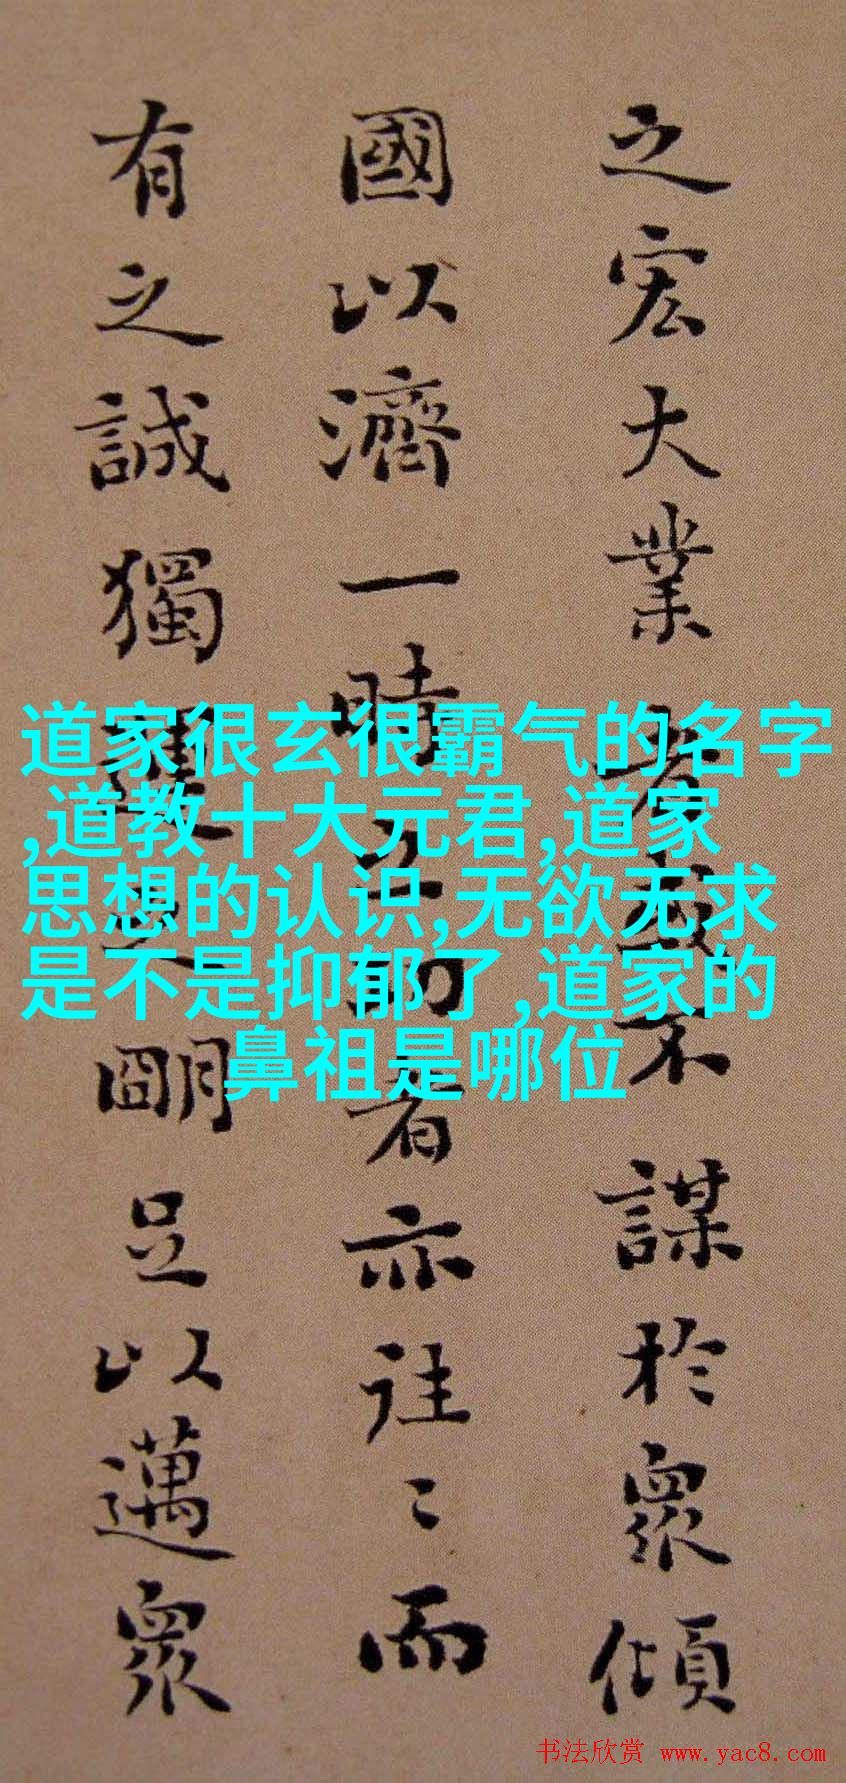 之宏大業者不謀於眾傾
國以濟一時之功者亦往〻而
有之誠獨運之朙足以邁眾
道家很玄很霸气的名字
,道教十大元君,道家
思想的认识,无欲无求
是不是抑郁了,道家的
鼻祖是哪位
书法欣赏 www.yac8.com